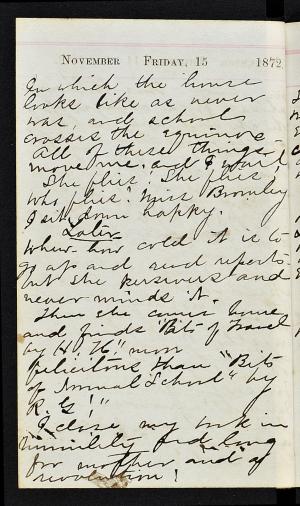 November Friday, 15 1872.
In which the house
looks like as never
was and school
crosses the equinox
All of these things
move me. and I wait
"She flies! She flies!
who flies? Miss Bromley
I sit down happy.
Later
Whew - how cold it is to
go up and read reports
but she perseveres and
never minds it.
Then she comes home
and finds "Bits of Travel
by H. H." more
felicitous than "Bits
of Normal School" by
R. G!"
I close my book in
humility and long
for mother and a
revolution!